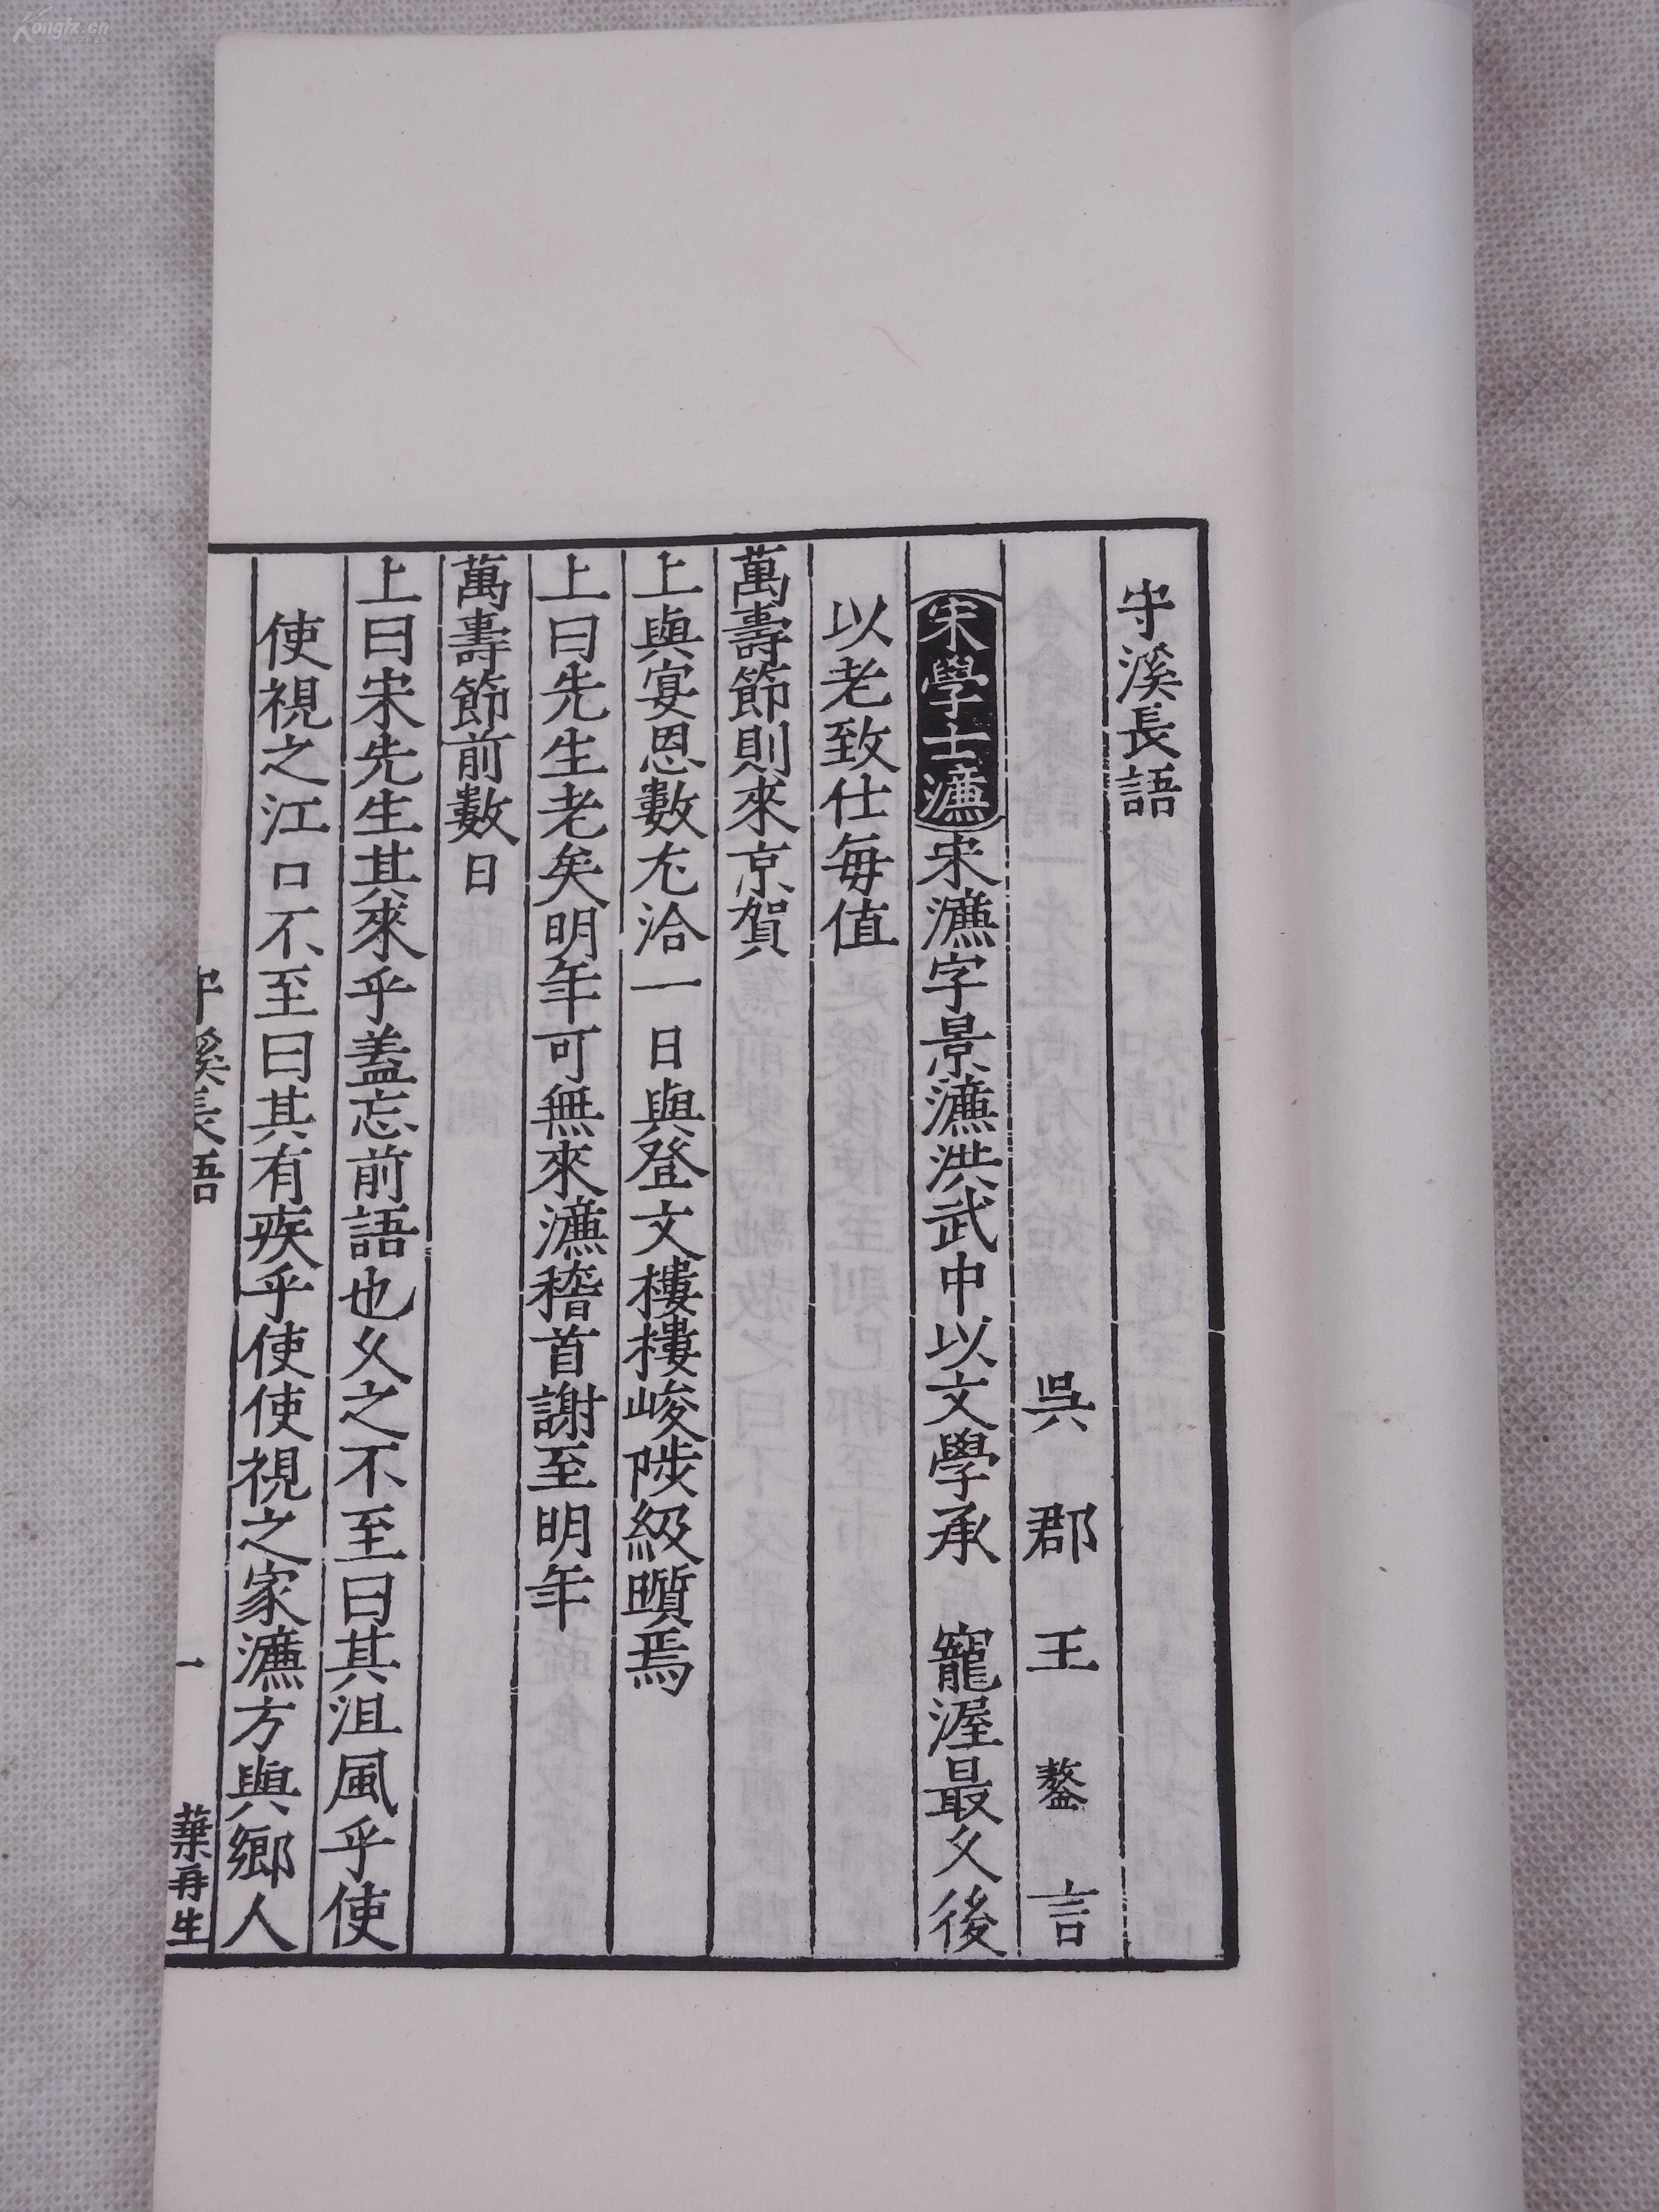 守溪長語
吳郡王鏊言
宋學士濂宋濂字景濂洪武中以文學承　寵渥最久後
以老致仕每值
萬壽節則來京賀
上與宴恩數尤洽一日與登文樓樓峻陟級躓焉
上曰先生老矣明年可無來濂稽首謝至明年
萬壽節前數日
上曰宋先生其來乎盖忘前語也久之不至曰其沮風乎使
使視之江口不至曰其有疾乎使使視之家濂方與鄉人
守溪長語　一　葉再生
Kongfz.cn